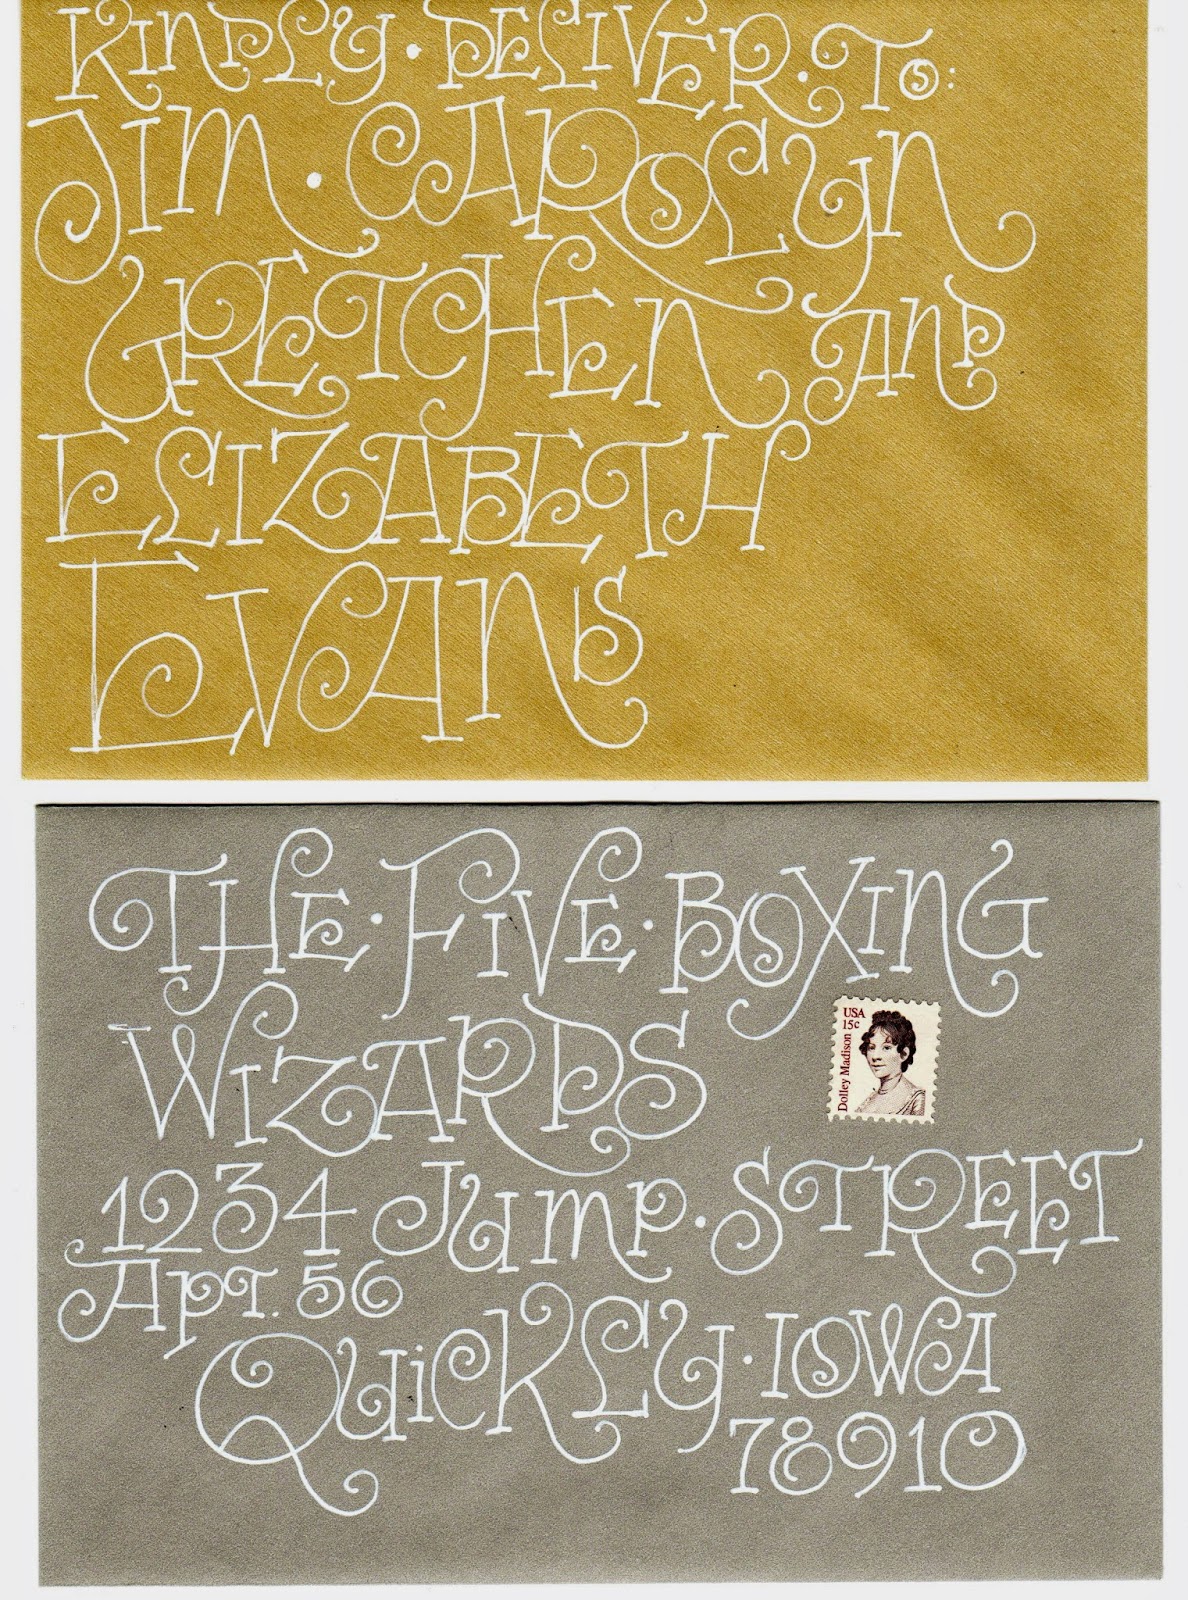 KINDLY · DELIVER · TO:
JIM · CAROLYN
GRETCHEN AND
ELIZABETH
EVANS
THE · FIVE · BOXING
WIZARDS
USA
15c
Dolley Madison
1234 JUMP · STREET
APT. 56
QUICKLEY · IOWA
78910